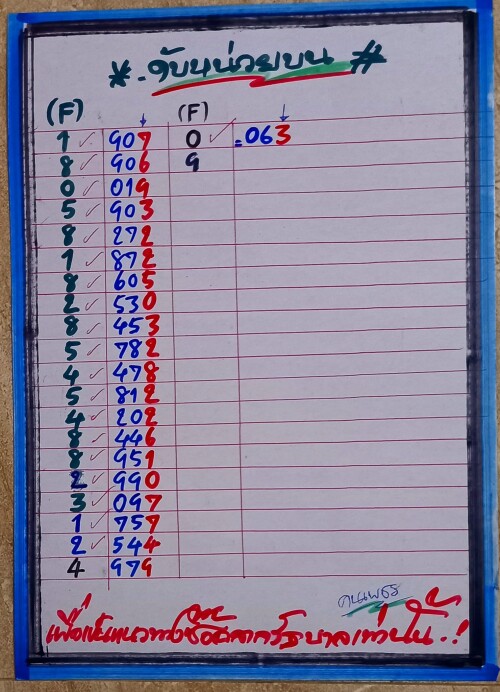 * . ดับหน่วยบน #
(F) (F)
1 ✓ 907 0 ✓ = 063
8 ✓ 906 9
0 ✓ 019
5 ✓ 903
8 ✓ 272
1 ✓ 872
8 ✓ 605
2 ✓ 530
8 ✓ 453
5 ✓ 782
4 ✓ 478
5 ✓ 812
4 ✓ 202
8 ✓ 446
8 ✓ 951
2 ✓ 990
3 ✓ 097
1 ✓ 757
2 ✓ 544
4 979
คนเพชร
เพื่อเป็นแนวทางซื้อสลากรัฐบาลเท่านั้น..!